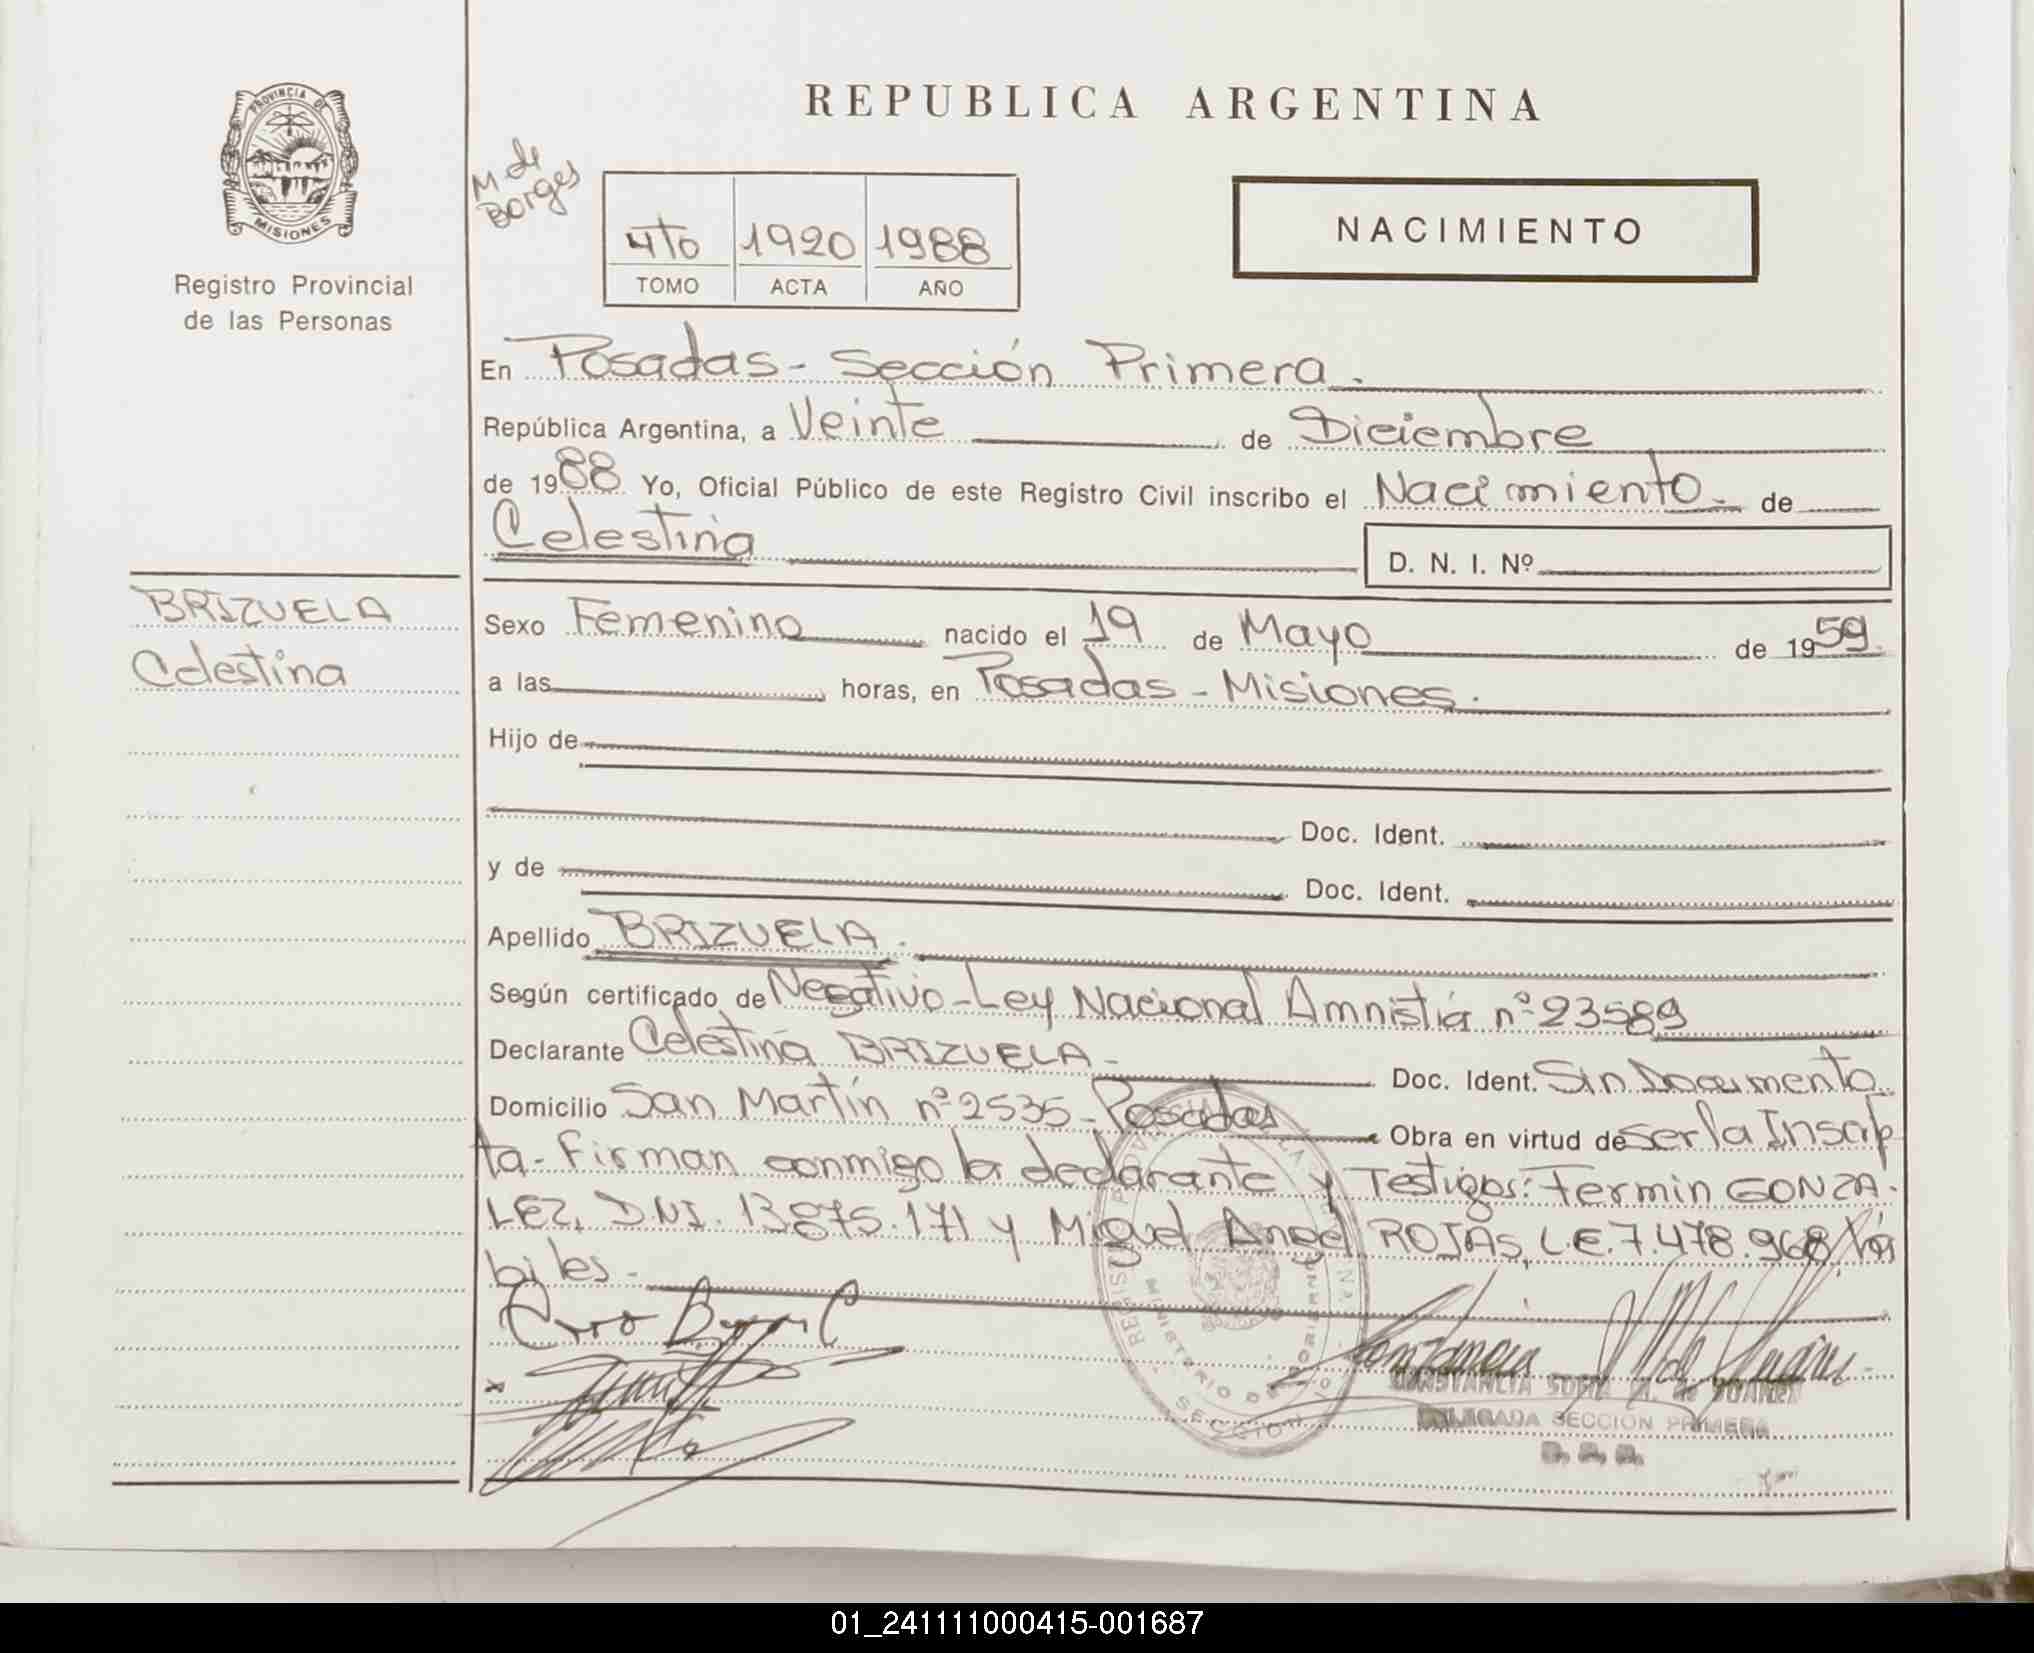 REPUBLICA ARGENTINA
PROVINCIA DE
MISIONES
Registro Provincial
de las Personas
M de
Borges
4to 1920 1988
TOMO ACTA AÑO
NACIMIENTO
En Posadas - Sección Primera.
República Argentina, a Veinte de Diciembre
de 1988 Yo, Oficial Público de este Registro Civil inscribo el Nacimiento - de
Celestina
D. N. I. Nº
BRIZUELA
Celestina
Sexo Femenino nacido el 19 de Mayo de 1959.
a las horas, en Posadas - Misiones.
Hijo de
Doc. Ident.
y de Doc. Ident.
Apellido BRIZUELA.
Según certificado de Negativo - Ley Nacional Amnistía nº 23589
Declarante Celestina BRIZUELA - Doc. Ident. Sin Documento
Domicilio San Martín nº 2535 - Posadas Obra en virtud de ser la Inscrip
ta - Firman conmigo la declarante y Testigos: Fermin GONZA-
LEZ, DNI. 13.875.171 y Miguel Angel ROJAS, L.E. 7.478.968 há
biles -
CONSTANCIA SOFIA M. de SUAREZ
DELEGADA SECCION PRIMERA
01_241111000415-001687